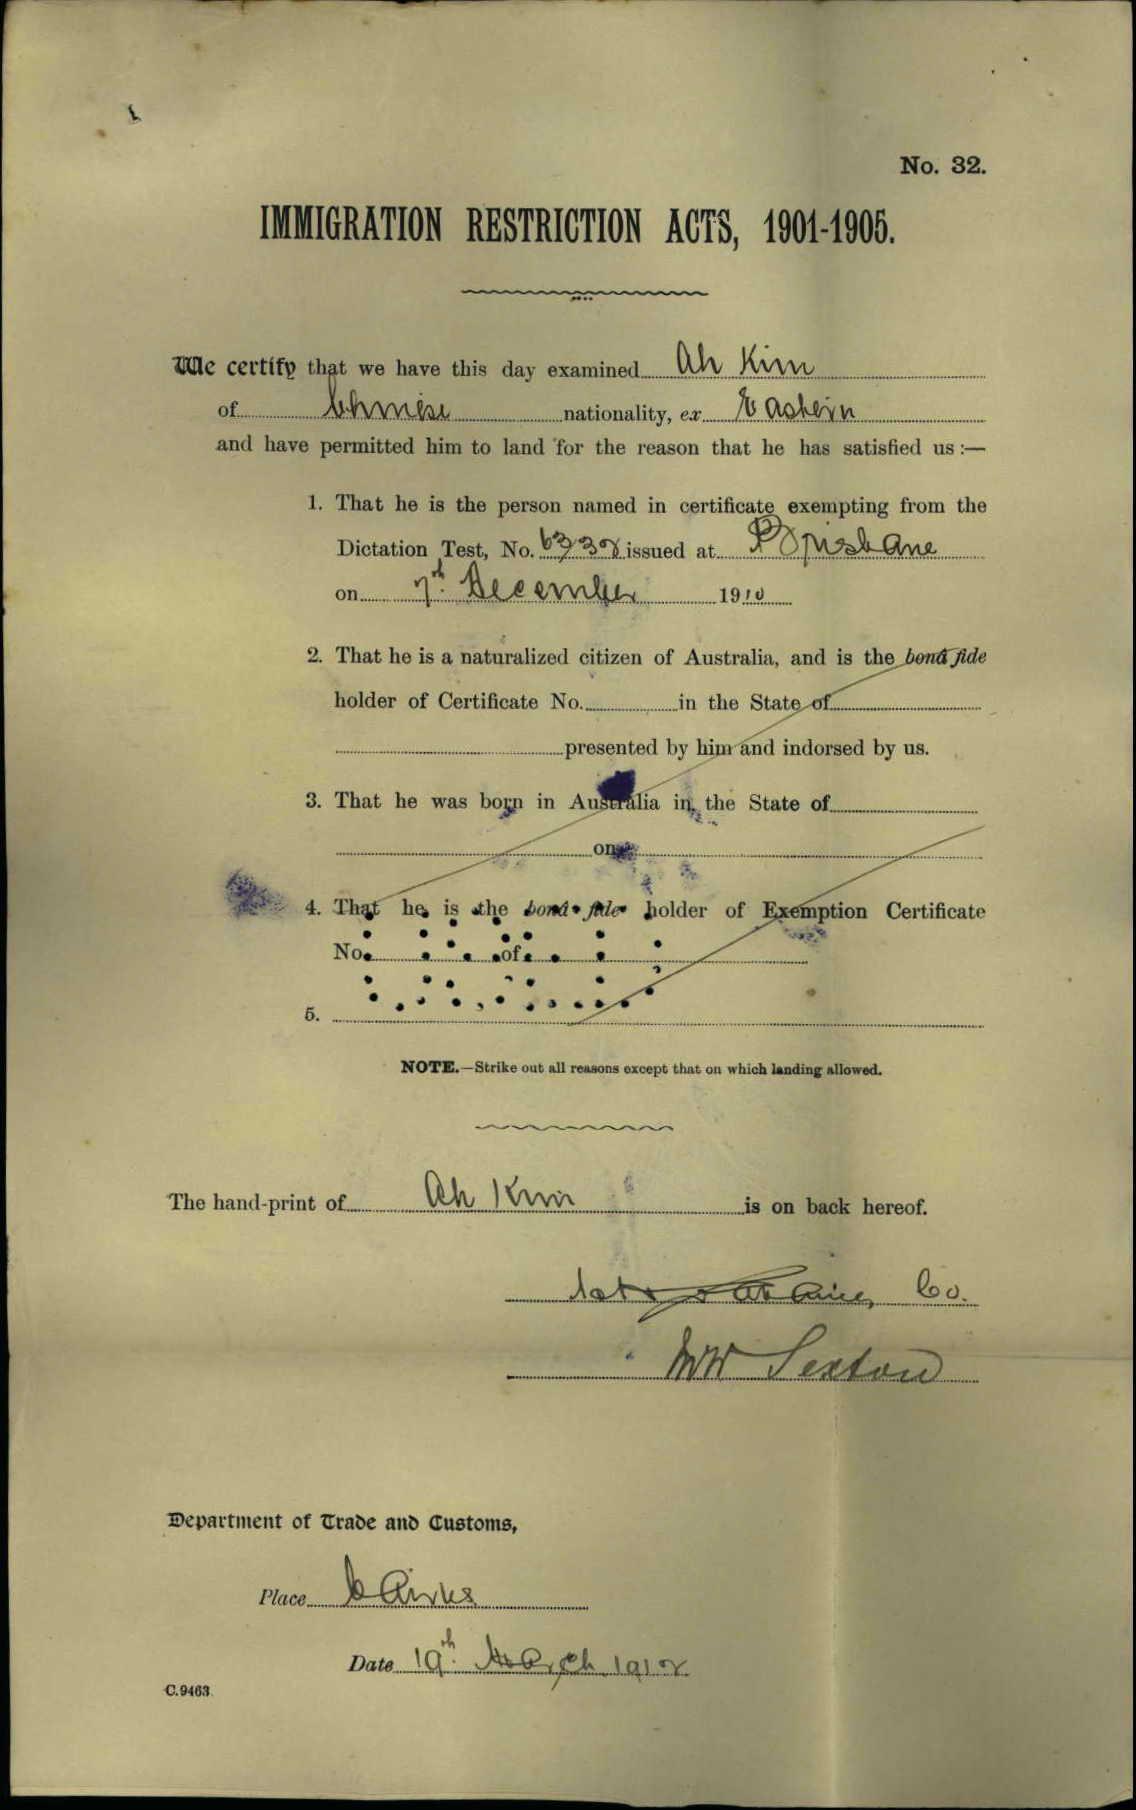 No. 32.
IMMIGRATION RESTRICTION ACTS, 1901-1905.
We certify that we have this day examined Ah Kim
of Chinese nationality, ex Eastern
and have permitted him to land for the reason that he has satisfied us :—
1. That he is the person named in certificate exempting from the
Dictation Test, No. issued at Brisbane
on 7th December 1910
2. That he is a naturalized citizen of Australia, and is the bonâ fide
holder of Certificate No. in the State of
presented by him and indorsed by us.
3. That he was born in Australia in the State of
on
4. That he is the bonâ fide holder of Exemption Certificate
No. of
5.
NOTE.—Strike out all reasons except that on which landing allowed.
The hand-print of Ah Kim is on back hereof.
Co.
Sexton
Department of Trade and Customs,
Place Cairns
Date 19th March 1912
C.9463.